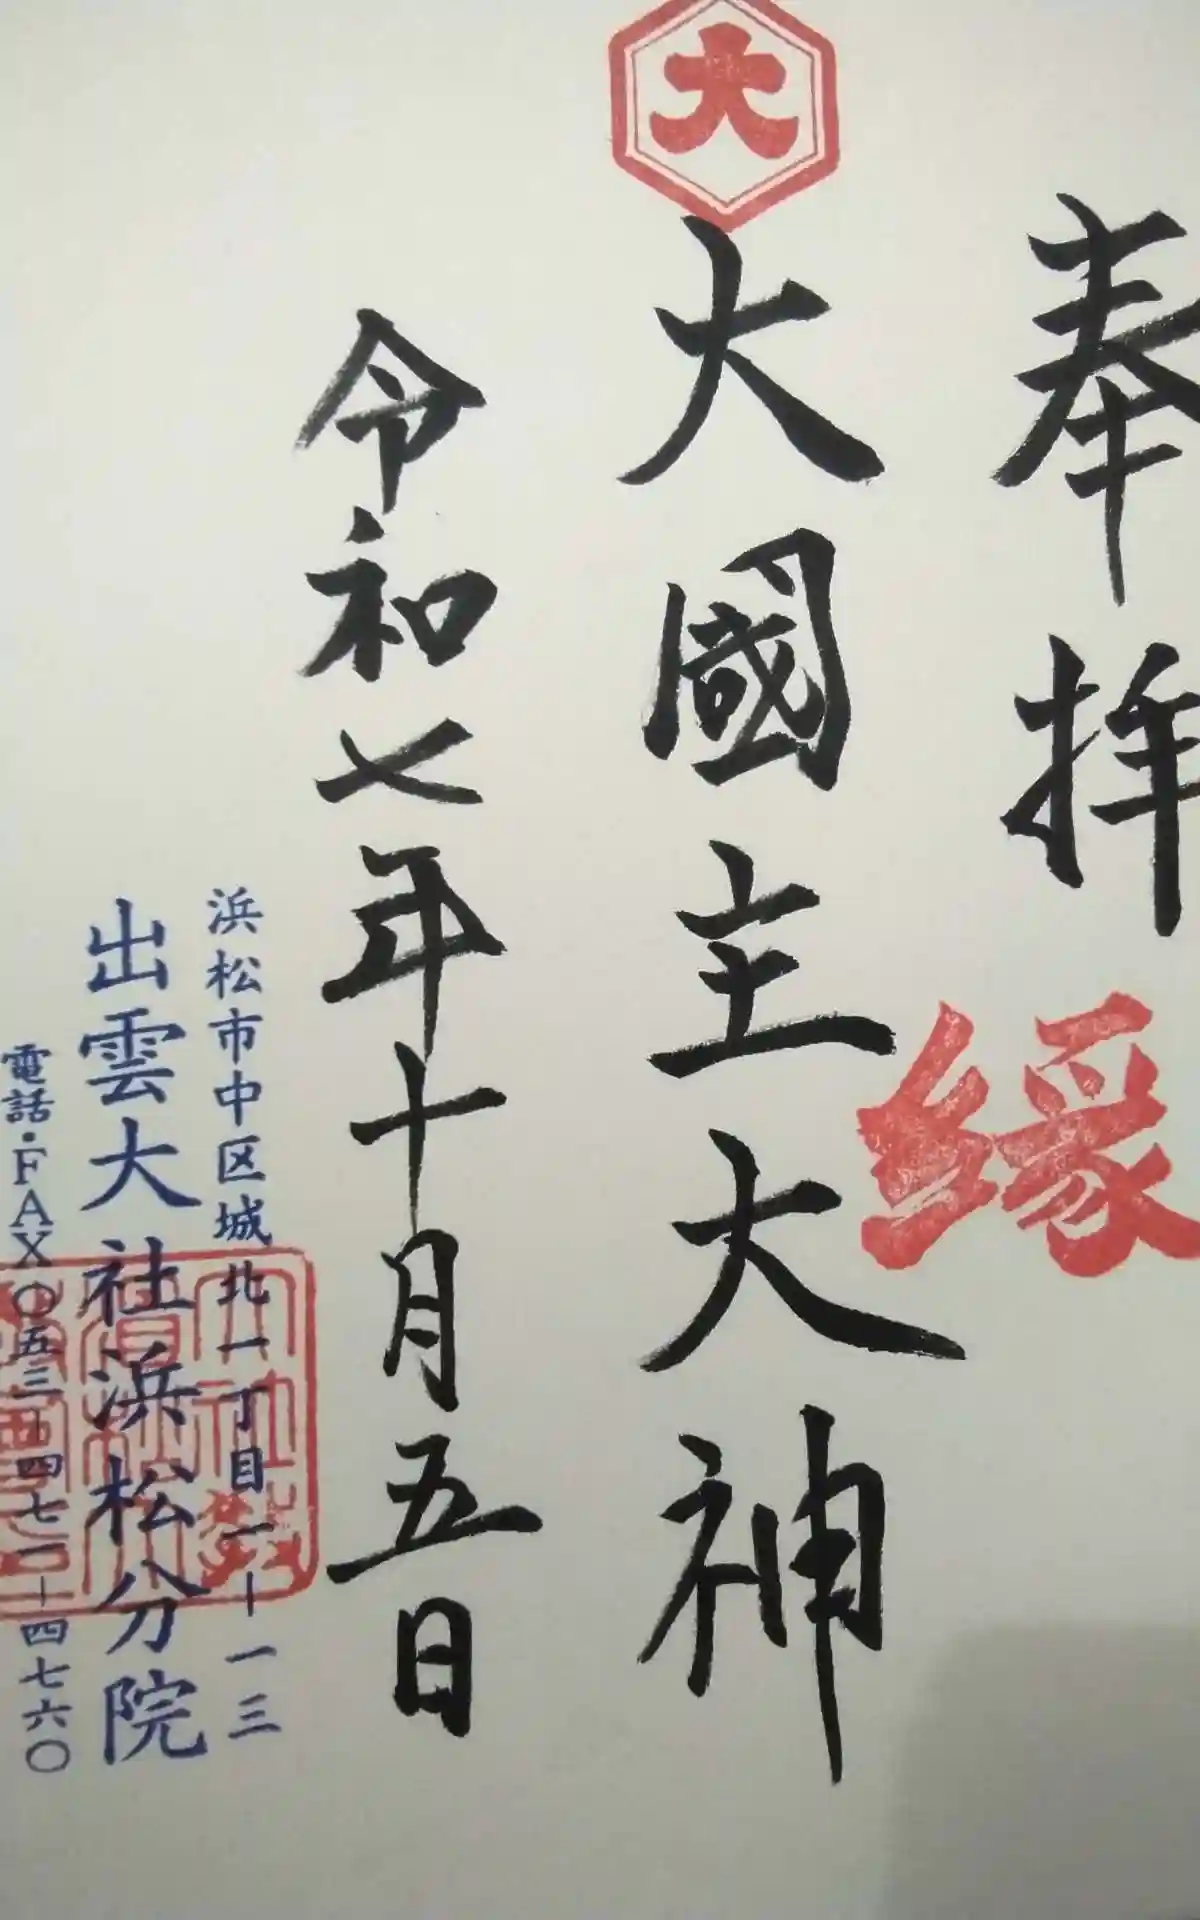 奉拝
縁
大
大國主大神
令和七年十月五日
浜松市中区城北一丁目一-一三
出雲大社浜松分院
電話・FAX〇五三-四七一-四七六〇